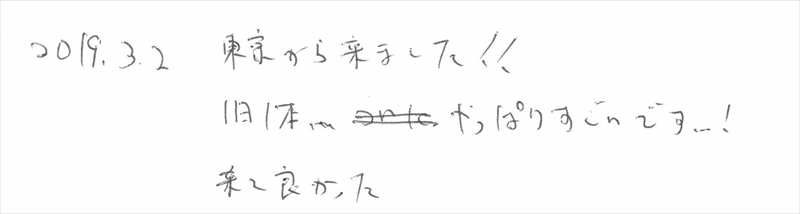 2019.3.2 東京から来ました!!
旧体… やっぱりすごいです…!
来て良かった